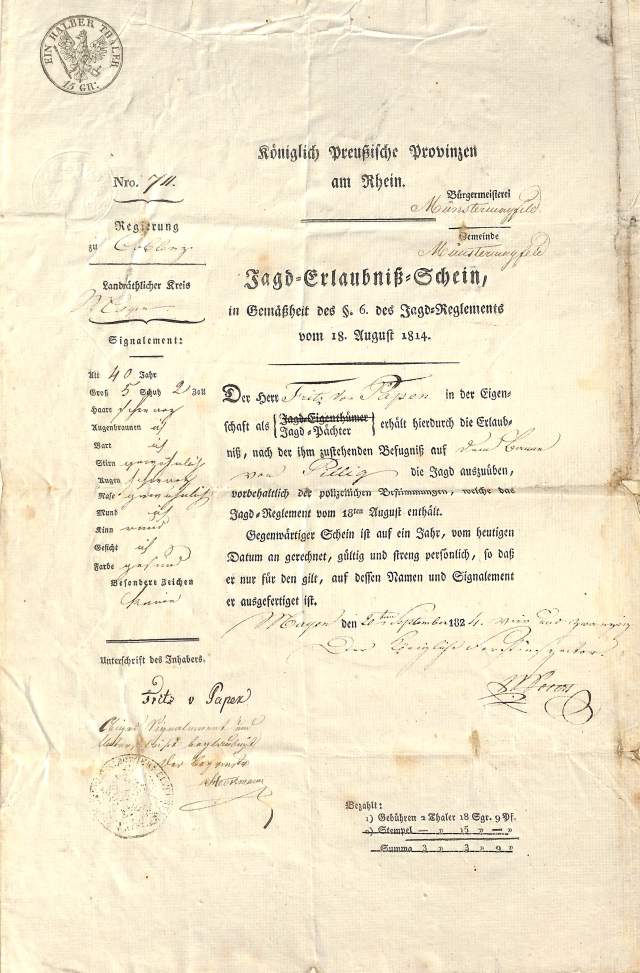 EIN HALBER THALER
15 GR:
Königlich Preußische Provinzen
am Rhein.
Nro. 74.
Bürgermeisterei
Münstermayfeld
Regierung
zu Coblenz
Gemeinde
Münstermayfeld
Landräthlicher Kreis
Mayen
Jagd-Erlaubniß-Schein,
in Gemäßheit des §. 6. des Jagd-Reglements
vom 18. August 1814.
Signalement:
Alt 40 Jahr
Groß 5 Schuh 2 Zoll
Haare schwarz
Augenbraunen id
Bart id
Stirn gewöhnlich
Augen schwarz
Nase gewöhnlich
Mund id
Kinn rund
Gesicht id
Farbe gesund
Besondere Zeichen
keine
Der Herr Fritz von Papen in der Eigen-
schaft als { Jagd-Eigenthümer
Jagd-Pächter } erhält hierdurch die Erlaub-
niß, nach der ihm zustehenden Befugniß auf dem Banne
von Pillig die Jagd auszuüben,
vorbehaltlich der polizeilichen Bestimmungen, welche das
Jagd-Reglement vom 18ten August enthält.
Gegenwärtiger Schein ist auf ein Jahr, vom heutigen
Datum an gerechnet, gültig und streng persönlich, so daß
er nur für den gilt, auf dessen Namen und Signalement
er ausgefertiget ist.
Mayen den 20ten September 1824. vier und zwanzig
Der Königliche Forstinspector
Unterschrift des Inhabers.
Fritz v Papen
Obiges Signalement und
Unterschrift beglaubigt
Der Bürgermstr
Bezahlt:
1) Gebühren 2 Thaler 18 Sgr. 9 Pf.
2) Stempel — „ 15 „ — „
Summa 3 „ 3 „ 9 „